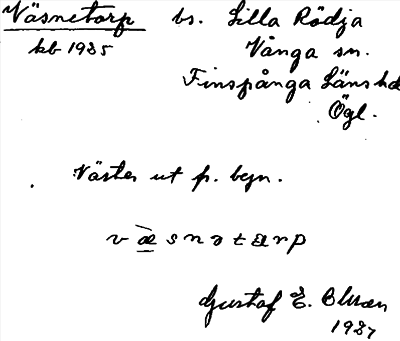 Väsnetorp bs. Lilla Rödja
kb 1935 Vånga sn.
Finspånga Länshd
Ögl.
Väster ut p. begn.
v æ̀ s n ə t a r p
Gustaf E.
1937